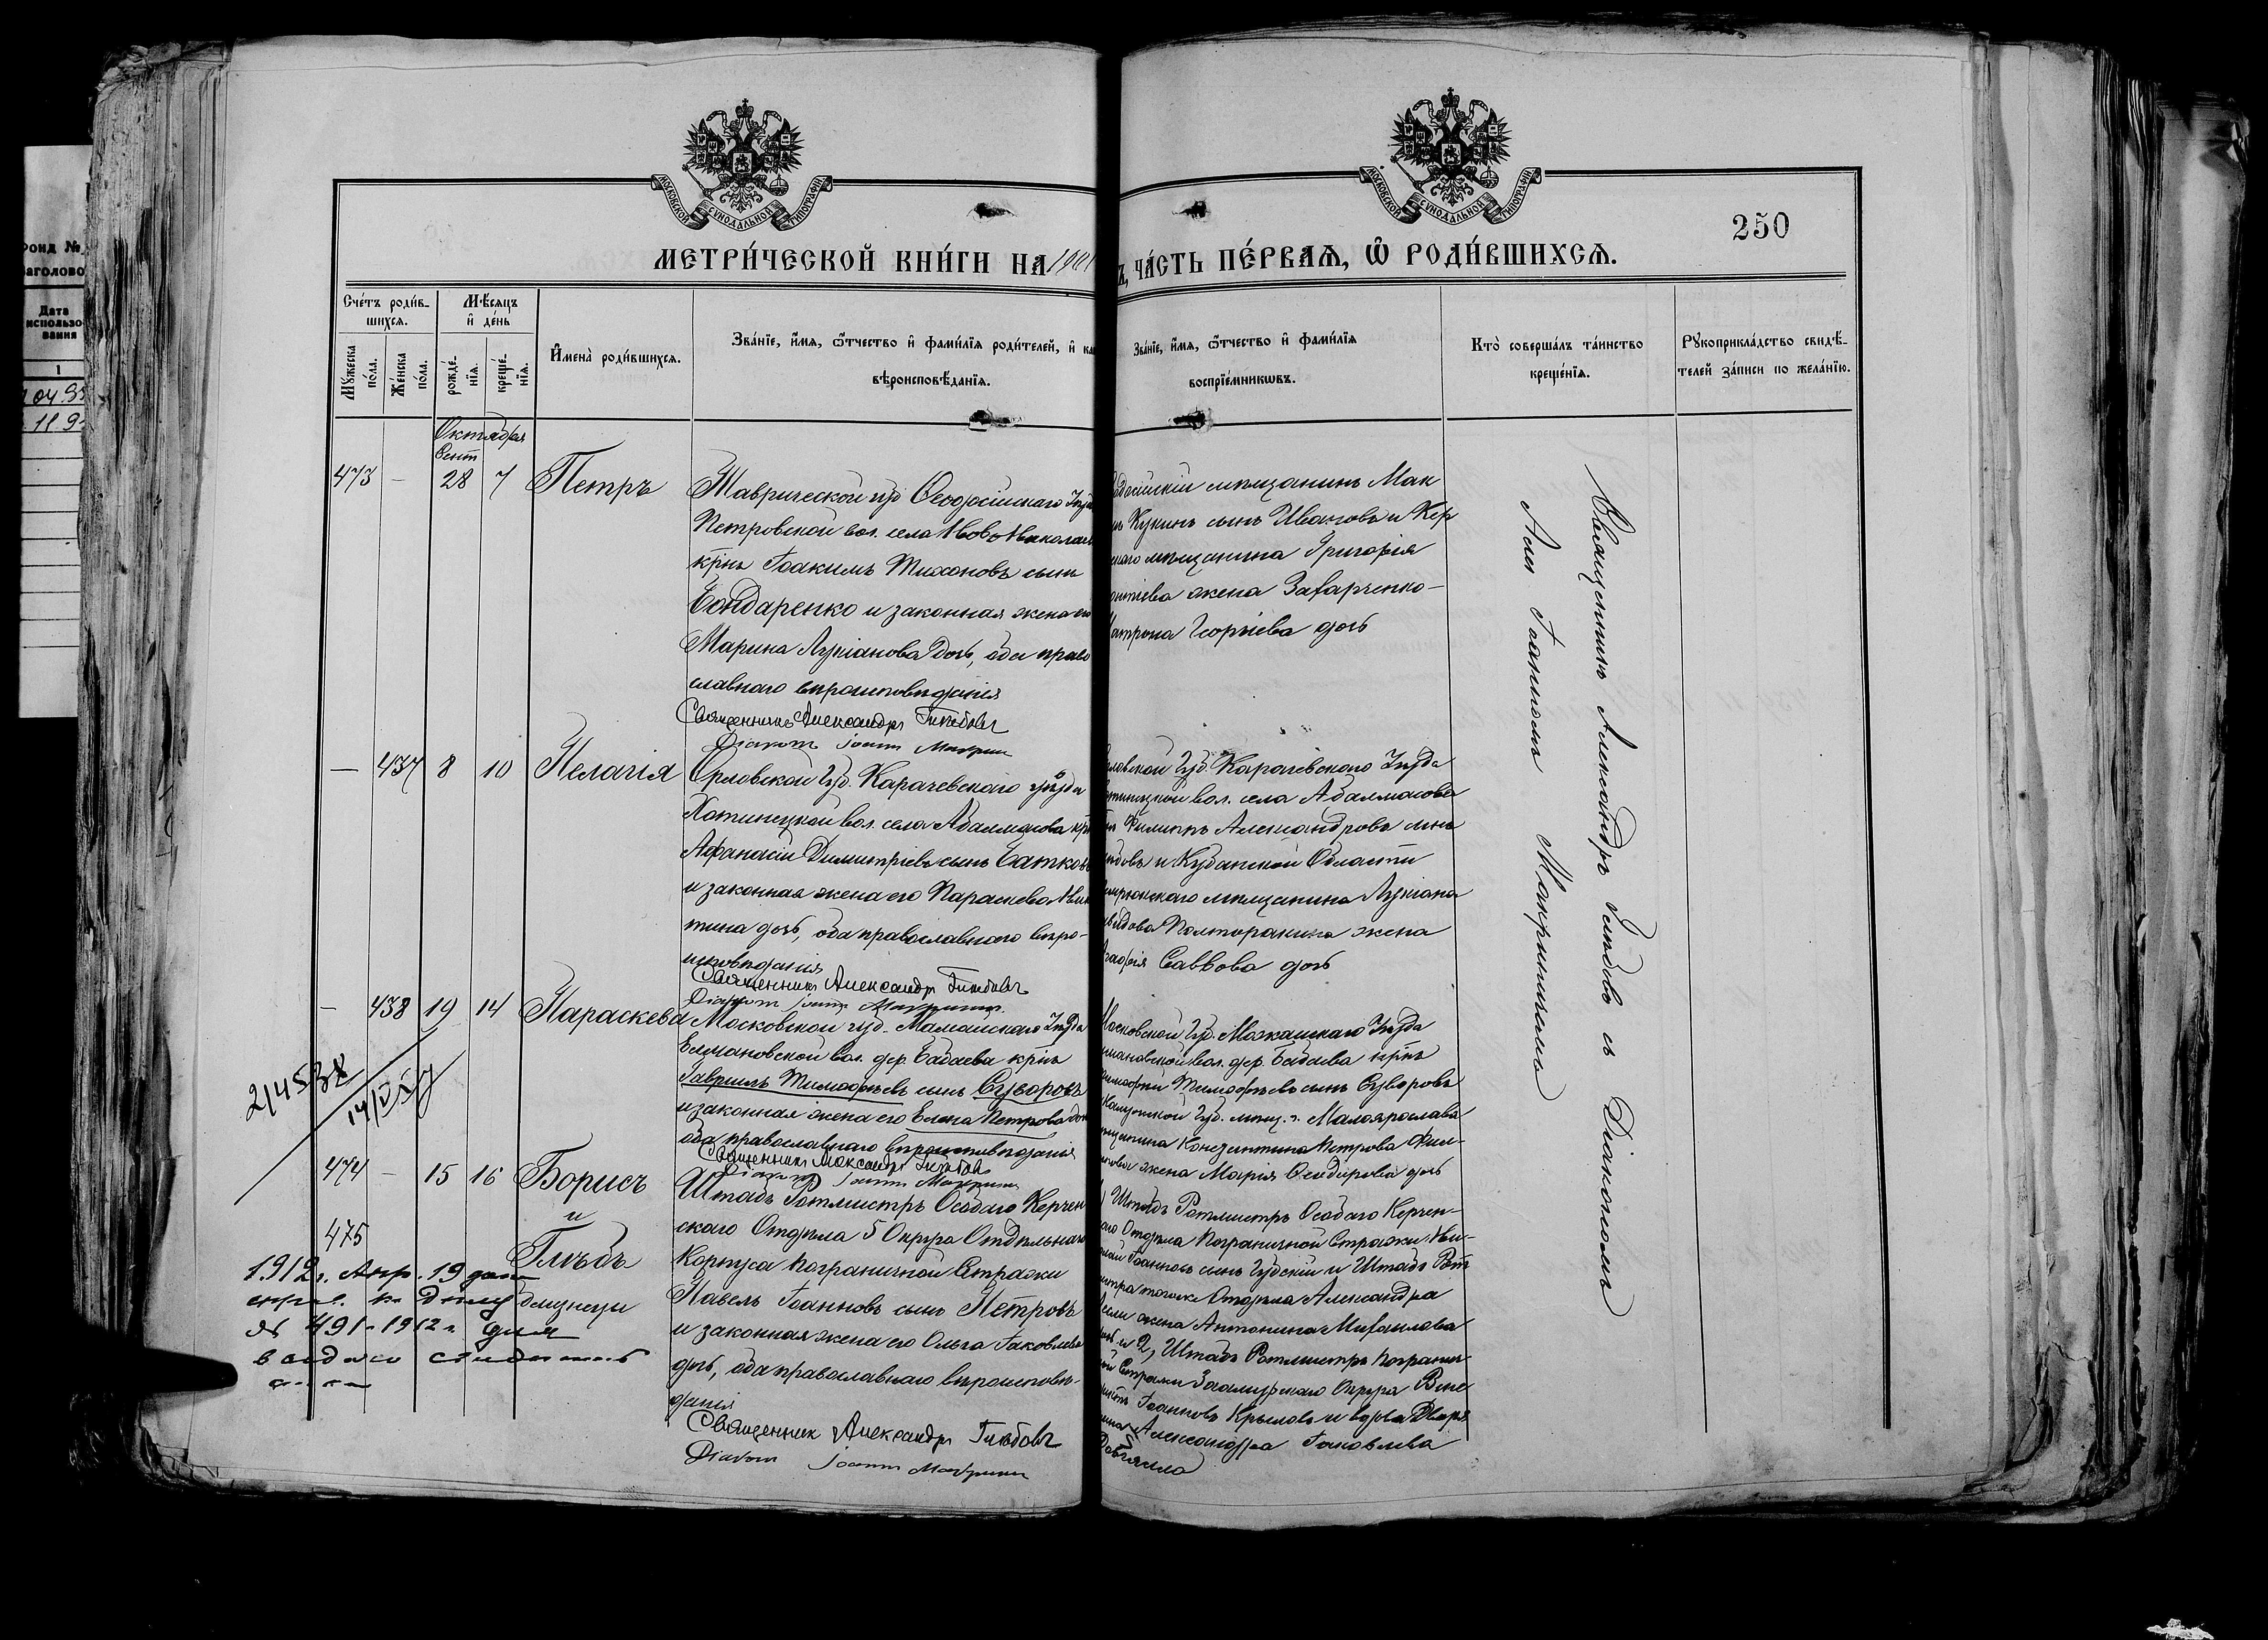 Фонд №
Заголово
Дата
использо-
вания
1
МОСКОВСКОЙ СѴНОДАЛЬНОЙ ТИПОГРАФІИ
МОСКОВСКОЙ СѴНОДАЛЬНОЙ ТИПОГРАФІИ
250
МЕТРИ́ЧЕСКОЙ КНИ́ГИ НА 1901
Ъ, ЧА́СТЬ ПЕ́РВАѦ, Ѽ РОДИ́ВШИХСѦ.
Сче́тъ роди́в-
шихсѧ.
Мѣ́сѧцъ
и҆ де́нь
Мꙋ́жеска по́ла.
Же́нска по́ла.
рожде́-
нїѧ.
креще́-
нїѧ.
И҆мена̀ роди́вшихсѧ.
Зва́нїе, и҆́мѧ, ѻ҆́тчество и҆ фами́лїѧ роди́телей, и҆ ка
вѣроисповѣ́данїѧ.
Зва́нїе, и҆́мѧ, ѻ҆́тчество и҆ фами́лїѧ
воспрїе́мникѡвъ.
Кто̀ соверша́лъ та́инство
креще́нїѧ.
Рꙋкоприкла́дство свидѣ́-
телей за́писи по жела́нїю.
Октября
Сент
473 — 28 7 Петръ
Таврической губ Ѳеодосійскаго Уѣзд
Петровской вол. села Ново Николаев
крнъ Іоакимъ Тихоновъ сынъ
Бондаренко и законная жена его
Марина Лукіанова дочь, оба право
славнаго вѣроисповѣданія
Священникъ Александръ Глѣбовъ
Діаконъ Іоаннъ Макринъ
одосійскій мѣщанинъ Мак
Кукинъ сынъ Ивановъ и Кер
скаго мѣщанина Григорія
жена Захарченко-
атрона Георгіева дочь
— 437 8 10 Пелагія
Орловской Губ. Карачевскаго уѣзда
Хотинецкой вол. села Абалмасова крн
Аѳанасій Димитріевъ сынъ Батковъ
и законная жена его Параскева Ники
тина дочь, оба православнаго вѣро-
исповѣданія
Священникъ Александръ Глѣбовъ
Діаконъ Іоаннъ Макринъ
рловской Губ. Карачевскаго Уѣзда
отинецкой вол. села Абалмасова
Филиппъ Александровъ сынъ
и Кубанской Области
емрюкскаго мѣщанина Лукіана
Полторакина жена
Саввова дочь
— 438 19 14 Параскева
Московской губ. Можайскаго Уѣзда
Елмановской вол. дер. Бабаева крнъ
Гавріилъ Тимоѳѣевъ сынъ Суворовъ
и законная жена его Елена Петрова доч
оба православнаго вѣроисповѣданія
Священникъ Александръ Глѣбовъ
Діаконъ Іоаннъ Макринъ
Московской Губ. Можайскаго Уѣзда
мановской вол. дер. Бабаева крнъ
имоѳей Тимоѳѣевъ сынъ Суворовъ
Калужской Губ. мѣщ. г. Малоярослав
щанина Константина Петрова Фил-
жена Марія Ѳеодорова дочь
474 — 15 16 Борисъ
и
475
Глѣбъ
близнецы
Штабъ Ротмистръ Особаго Керчен
скаго Отдѣла 5 Округа Отдѣльнаго
Корпуса Пограничной Стражи
Павелъ Іоанновъ сынъ Петровъ
и законная жена его Ольга Іаковлева
дочь, оба православнаго вѣроисповѣ-
данія
Священник Александръ Глѣбовъ
Діаконъ Іоаннъ Макринъ
Штабъ Ротмистръ Особаго Керчен-
аго Отдѣла Пограничной Стражи Ни-
лай Іоанновъ сынъ Губскій и Штабъ Рот
истра того же Отдѣла Александра
жена Антонина Михаилова
и 2, Штабъ Ротмистръ Погранич
ой Стражи Заамурскаго Округа
Іоанновъ Крыловъ и вдова Двор
Александра Іаковлева
1912 г. Апр. 19 дня
№ 491-1912 г.
Священникъ Александръ Глѣбовъ съ Діакономъ
Іоанномъ Макринымъ